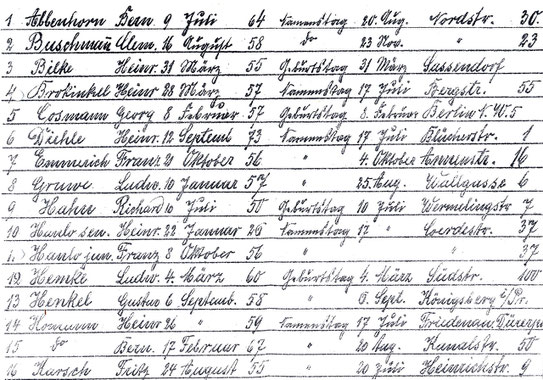 1 Abbenhorn Bern. 9 Juli 64 Namenstag 20. Aug. Nordstr. 30
2 Buschmann Clem. 16 August 58 do 23 Nov. " 23
3 Bilke Heinr. 31 März 55 Geburtstag 31 März Sassendorf
4 Brokinkel Heinr 28 März 57 Namenstag 17 Juli Bergstr. 55
5 Cosmann Georg 8 Februar 57 Geburtstag 8. Februar Berlin N.W. 5
6 Diehle Heinr. 12 Septemb 73 Namenstag 17 Juli Blücherstr. 1
7 Emmerich Franz 21 Oktober 56 " 4. Oktober Annenstr. 16
8 Gruwe Ludw. 10 Januar 57 " 25. Aug. Wallgasse 6
9 Hahn Richard 10 Juli 50 Geburtstag 10 Juli Wermelingstr 7
10 Hanlo sen. Heinr. 22 Januar 26 Namenstag 17 " Coerdestr. 37
11 Hanlo jun. Franz 8 Oktober 56 " " 37
12 Hemke Ludw. 4. März 60 Geburtstag 4. März Südstr. 100
13 Henkel Gustav 6 Septemb. 58 " 6. Sept. Königsberg i/Pr.
14 Homann Heinr 26 " 59 Namenstag 17 Juli Friedenau,
15 do Bern. 17 Februar 62 " 20 Aug. Kanalstr. 50
16 Karsch Fritz 24 August 55 " 20 Juli Heinrichstr. 9